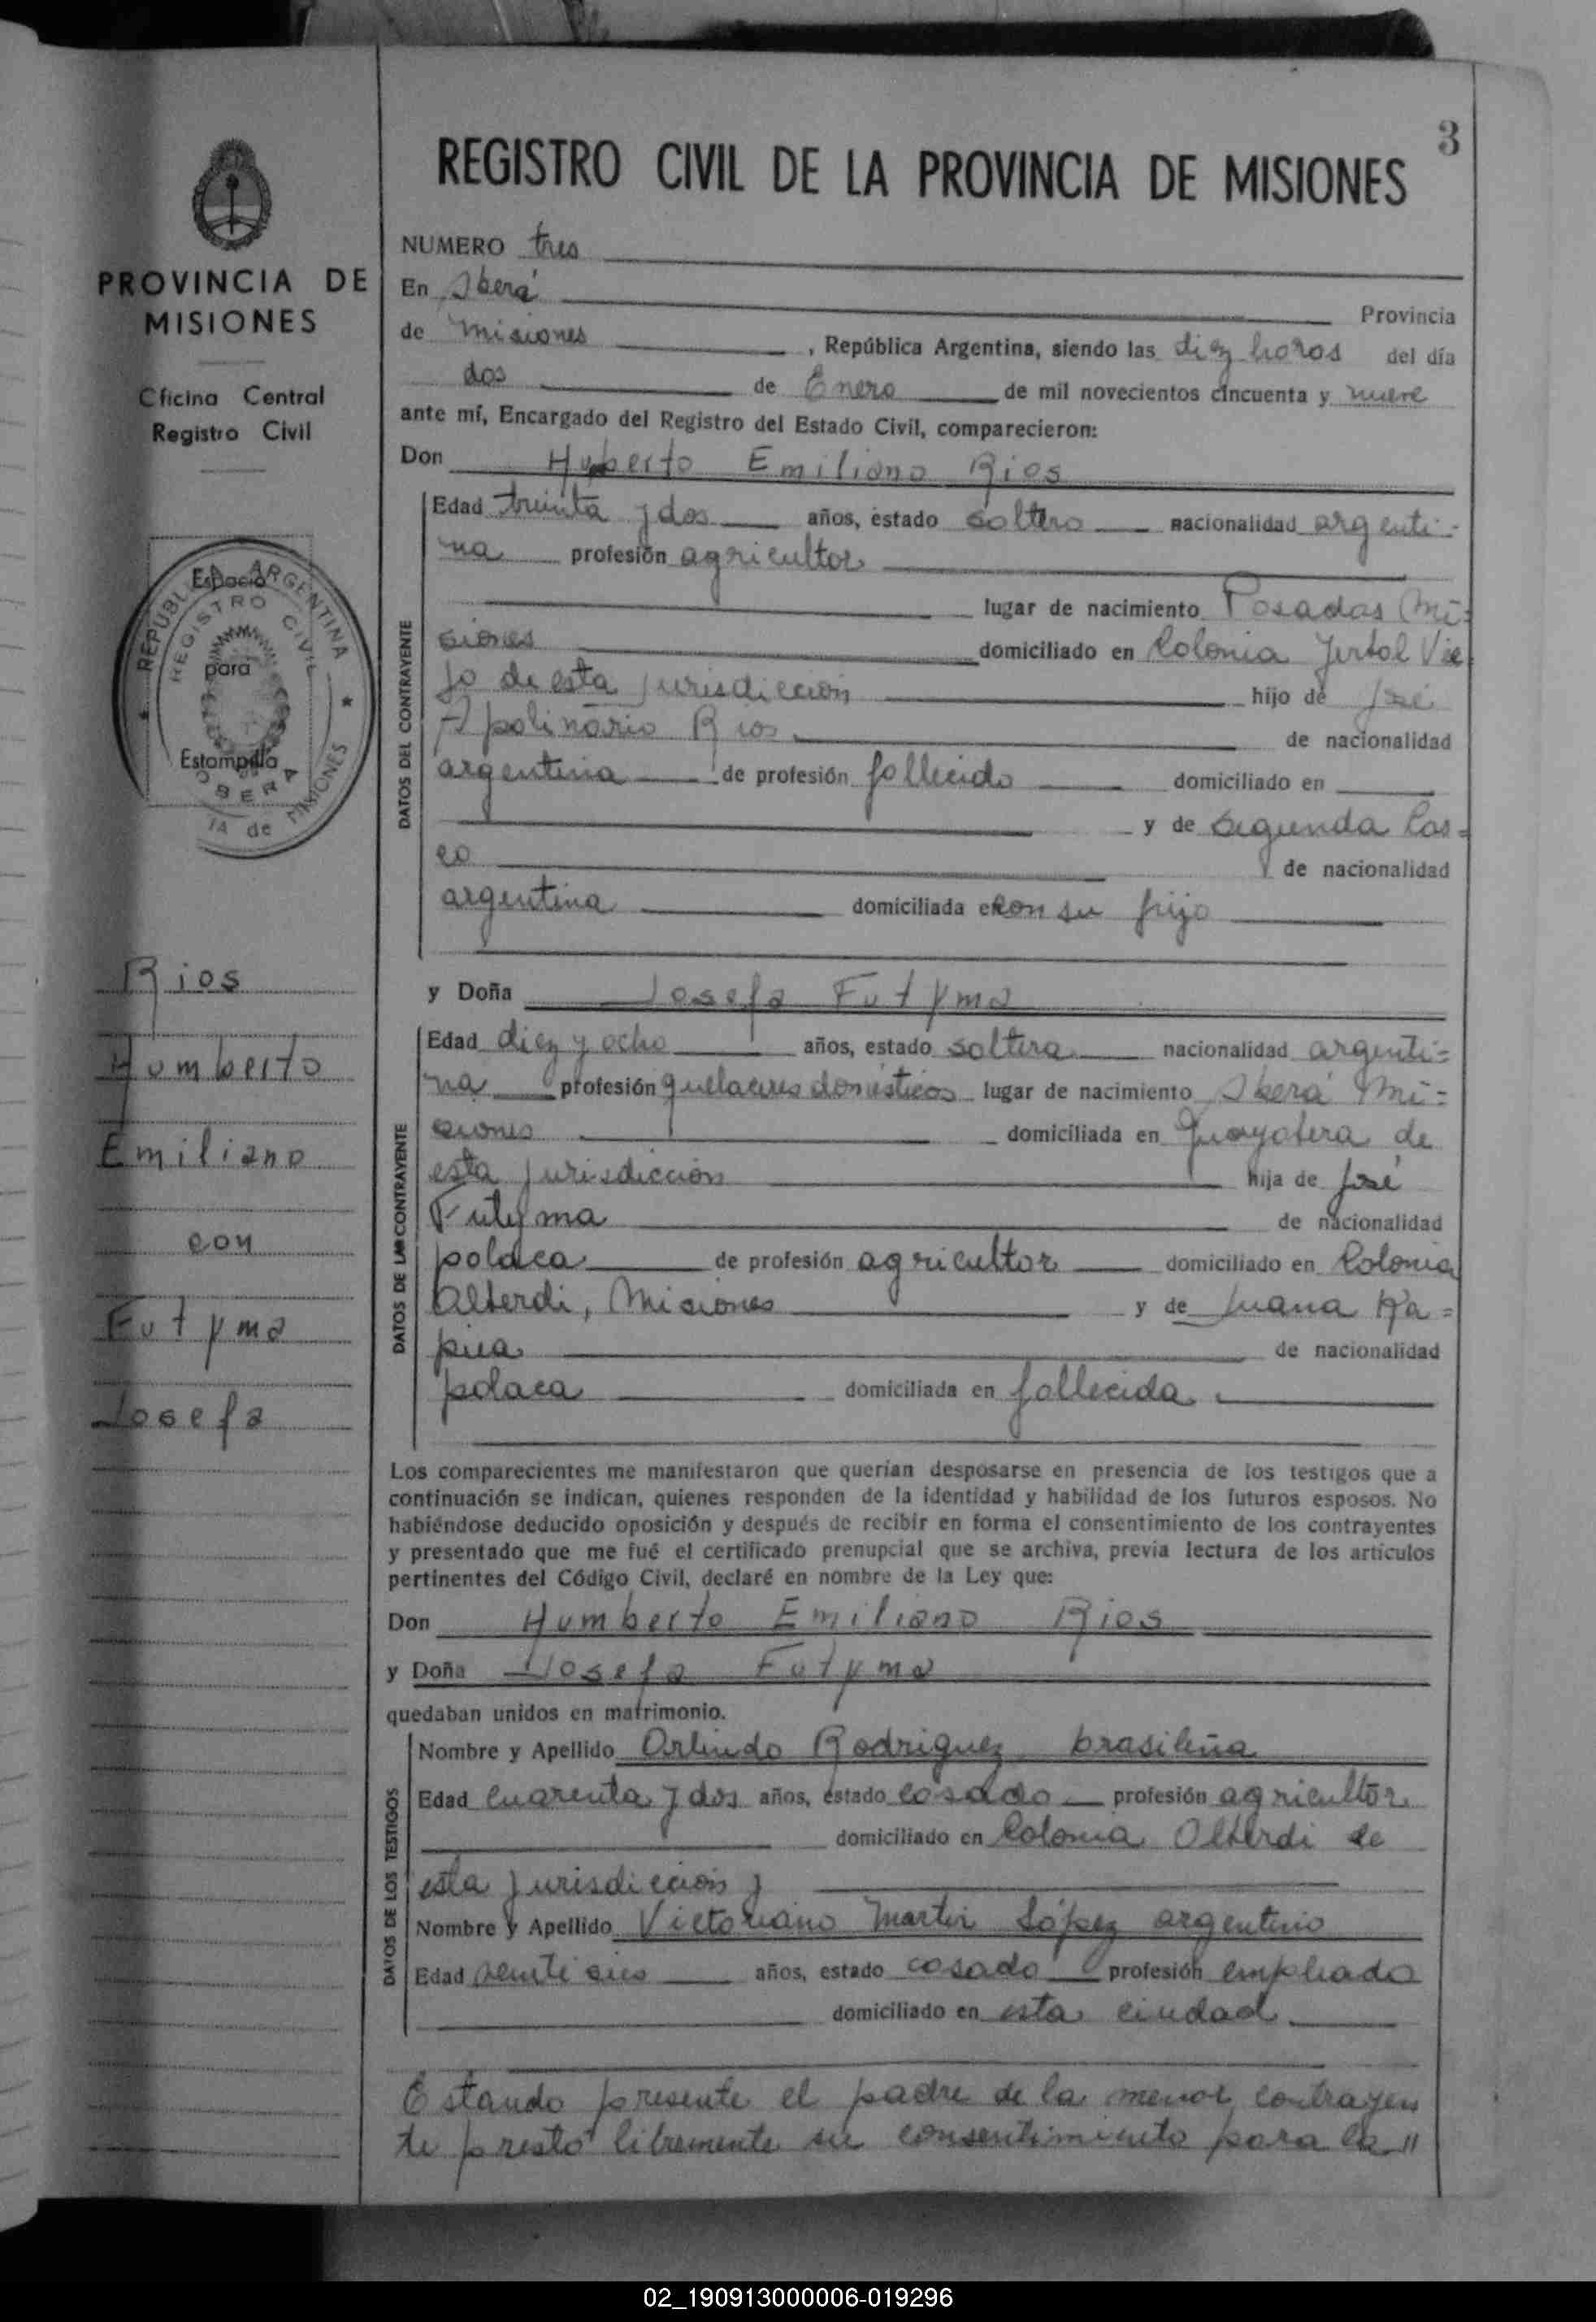 3
REGISTRO CIVIL DE LA PROVINCIA DE MISIONES
PROVINCIA DE
MISIONES
Oficina Central
Registro Civil
REPUBLICA ARGENTINA
REGISTRO CIVIL
Espacio
para
Estampilla
OBERA
IA de MISIONES
Rios
Humberto
Emiliano
con
Futyma
Josefa
NUMERO tres
En Oberá
Provincia
de Misiones , República Argentina, siendo las diez horas del día
dos de Enero de mil novecientos cincuenta y nueve
ante mí, Encargado del Registro del Estado Civil, comparecieron:
Don Humberto Emiliano Rios
DATOS DEL CONTRAYENTE
Edad treinta y dos años, estado soltero nacionalidad argenti=
na profesión agricultor
lugar de nacimiento Posadas Mi=
siones domiciliado en Colonia Yerbal Vie
jo de esta jurisdicción hijo de José
Apolinario Rios de nacionalidad
argentina de profesión fallecido domiciliado en
y de Segunda Cas=
co de nacionalidad
argentina domiciliada en con su hijo
y Doña Josefa Futyma
DATOS DE LA CONTRAYENTE
Edad diez y ocho años, estado soltera nacionalidad argenti=
na profesión quehaceres domésticos lugar de nacimiento Oberá Mi=
siones domiciliada en Guayabera de
esta jurisdicción hija de José
Futyma de nacionalidad
polaca de profesión agricultor domiciliado en Colonia
Alberdi, Misiones y de Juana Ka=
pica de nacionalidad
polaca domiciliada en fallecida
Los comparecientes me manifestaron que querían desposarse en presencia de los testigos que a
continuación se indican, quienes responden de la identidad y habilidad de los futuros esposos. No
habiéndose deducido oposición y después de recibir en forma el consentimiento de los contrayentes
y presentado que me fué el certificado prenupcial que se archiva, previa lectura de los artículos
pertinentes del Código Civil, declaré en nombre de la Ley que:
Don Humberto Emiliano Rios
y Doña Josefa Futyma
quedaban unidos en matrimonio.
DATOS DE LOS TESTIGOS
Nombre y Apellido Arlindo Rodriguez brasileña
Edad cuarenta y dos años, estado casado profesión agricultor
domiciliado en Colonia Alberdi de
esta jurisdicción y
Nombre y Apellido Victoriano Martir López argentino
Edad veintiseis años, estado casado profesión empleado
domiciliado en esta ciudad
Estando presente el padre de la menor contrayen
te prestó libremente su consentimiento para la "
02_190913000006-019296